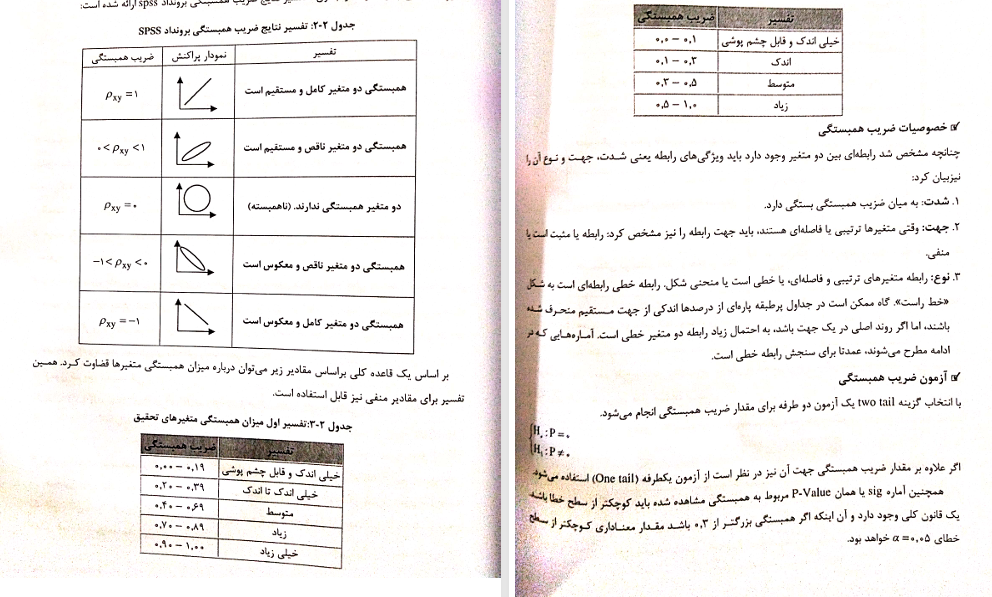 تفسیر نتایج ضریب همبستگی برونداد spss ارائه شده است:
جدول ۲-۲: تفسیر نتایج ضریب همبستگی برونداد SPSS
تفسیر نمودار پراکنش ضریب همبستگی
همبستگی دو متغیر کامل و مستقیم است ρxy = ۱
همبستگی دو متغیر ناقص و مستقیم است ۰ < ρxy < ۱
دو متغیر همبستگی ندارند. (ناهمبسته) ρxy = ۰
همبستگی دو متغیر ناقص و معکوس است −۱ < ρxy < ۰
همبستگی دو متغیر کامل و معکوس است ρxy = −۱
بر اساس یک قاعده کلی براساس مقادیر زیر می‌توان درباره میزان همبستگی متغیرها قضاوت کرد. همین
تفسیر برای مقادیر منفی نیز قابل استفاده است.
جدول ۲-۳: تفسیر اول میزان همبستگی متغیرهای تحقیق
تفسیر ضریب همبستگی
خیلی اندک و قابل چشم پوشی ۰,۰۰ – ۰,۱۹
خیلی اندک تا اندک ۰,۲۰ – ۰,۳۹
متوسط ۰,۴۰ – ۰,۶۹
زیاد ۰,۷۰ – ۰,۸۹
خیلی زیاد ۰,۹۰ – ۱,۰۰
تفسیر ضریب همبستگی
خیلی اندک و قابل چشم پوشی ۰,۰ – ۰,۱
اندک ۰,۱ – ۰,۳
متوسط ۰,۳ – ۰,۵
زیاد ۰,۵ – ۱,۰
☑ خصوصیات ضریب همبستگی
چنانچه مشخص شد رابطه‌ای بین دو متغیر وجود دارد باید ویژگی‌های رابطه یعنی شدت، جهت و نوع آن را
نیزبیان کرد:
۱. شدت: به میان ضریب همبستگی بستگی دارد.
۲. جهت: وقتی متغیرها ترتیبی یا فاصله‌ای هستند، باید جهت رابطه را نیز مشخص کرد: رابطه یا مثبت است یا
منفی.
۳. نوع: رابطه متغیرهای ترتیبی و فاصله‌ای، یا خطی است یا منحنی شکل. رابطه خطی رابطه‌ای است به شکل
«خط راست». گاه ممکن است در جداول پرطبقه پاره‌ای از درصدها اندکی از جهت مستقیم منحرف شده
باشند، اما اگر روند اصلی در یک جهت باشد، به احتمال زیاد رابطه دو متغیر خطی است. آماره‌هایی که در
ادامه مطرح می‌شوند، عمدتا برای سنجش رابطه خطی است.
☑ آزمون ضریب همبستگی
با انتخاب گزینه two tail یک آزمون دو طرفه برای مقدار ضریب همبستگی انجام می‌شود.
H۰ : P = ۰
H۱ : P ≠ ۰
اگر علاوه بر مقدار ضریب همبستگی جهت آن نیز در نظر است از آزمون یکطرفه (One tail) استفاده می‌شود.
همچنین آماره sig یا همان P-Value مربوط به همبستگی مشاهده شده باید کوچکتر از سطح خطا باشد.
یک قانون کلی وجود دارد و آن اینکه اگر همبستگی بزرگتر از ۰,۳ باشد مقدار معناداری کوچکتر از سطح
خطای α = ۰,۰۵ خواهد بود.